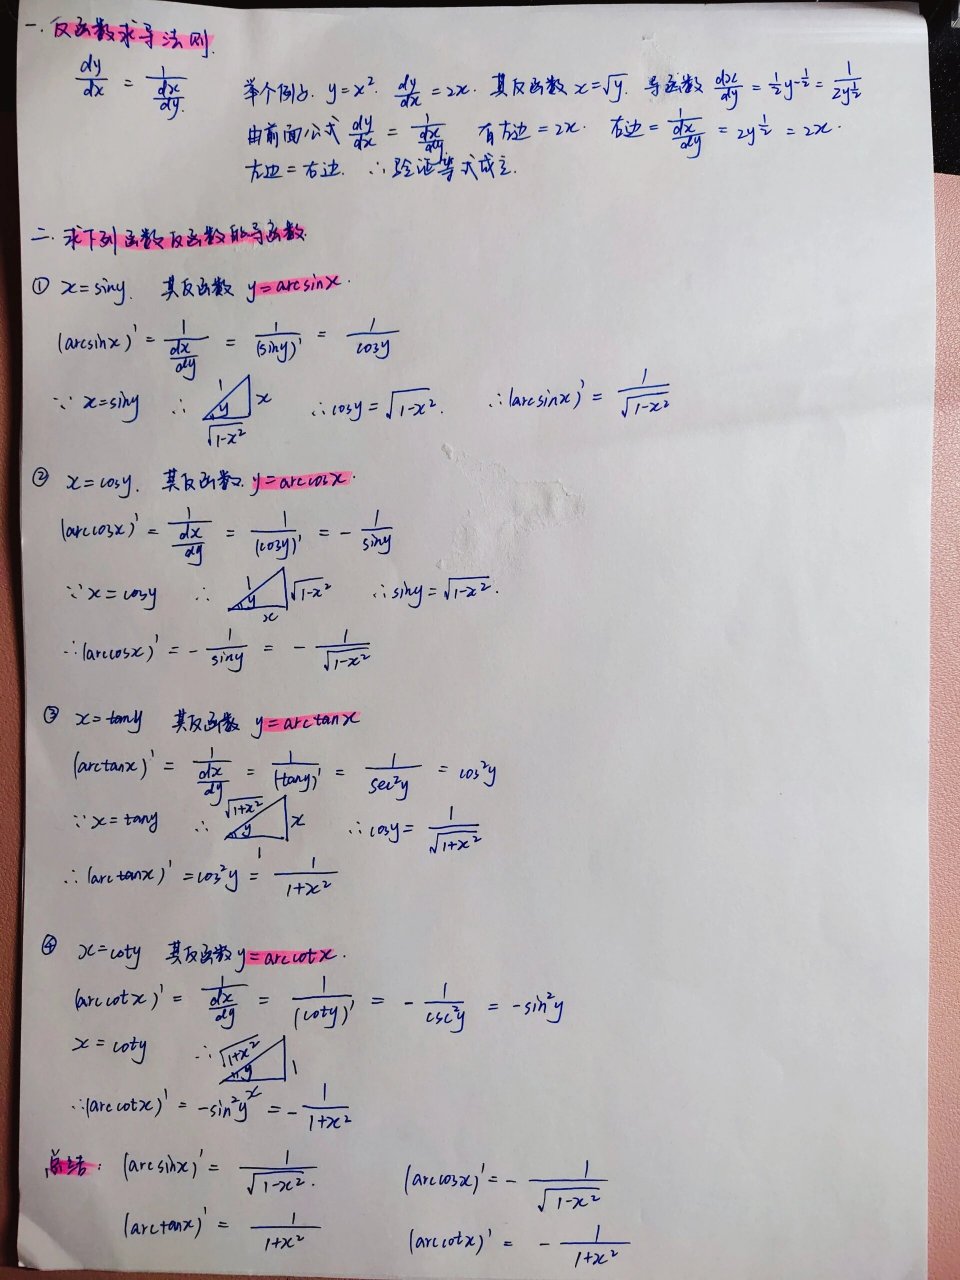 一. 反函数求导法则.
dy/dx = 1/(dx/dy) 举个例子. y=x². dy/dx = 2x. 其反函数 x=√y. 导函数 dx/dy = ½y^(-½) = 1/(2y^½)
由前面公式 dy/dx = 1/(dx/dy) 有左边=2x. 右边= 1/(dx/dy) = 2y^½ = 2x.
左边=右边. ∴验证等式成立.
二. 求下列函数反函数的导函数.
① x=siny. 其反函数 y=arcsinx.
(arcsinx)' = 1/(dx/dy) = 1/(siny)' = 1/cosy
∵ x=siny ∴ 1 y x √(1-x²) ∴cosy=√(1-x²). ∴(arcsinx)' = 1/√(1-x²)
② x=cosy. 其反函数. y=arccosx.
(arccosx)' = 1/(dx/dy) = 1/(cosy)' = - 1/siny
∵x=cosy ∴ 1 y √(1-x²) x ∴siny=√(1-x²).
∴(arccosx)' = - 1/siny = - 1/√(1-x²)
③ x=tany 其反函数 y=arctanx
(arctanx)' = 1/(dx/dy) = 1/(tany)' = 1/sec²y = cos²y
∵x=tany ∴ √(1+x²) y x 1 ∴cosy= 1/√(1+x²)
∴(arctanx)' =cos²y = 1/(1+x²)
④ x=coty 其反函数 y=arccotx.
(arccotx)' = 1/(dx/dy) = 1/(coty)' = - 1/csc²y = -sin²y
x=coty ∴ √(1+x²) y 1 x
∴(arccotx)' = -sin²y = - 1/(1+x²)
总结: (arcsinx)' = 1/√(1-x²). (arccosx)' = - 1/√(1-x²)
(arctanx)' = 1/(1+x²) (arccotx)' = - 1/(1+x²)